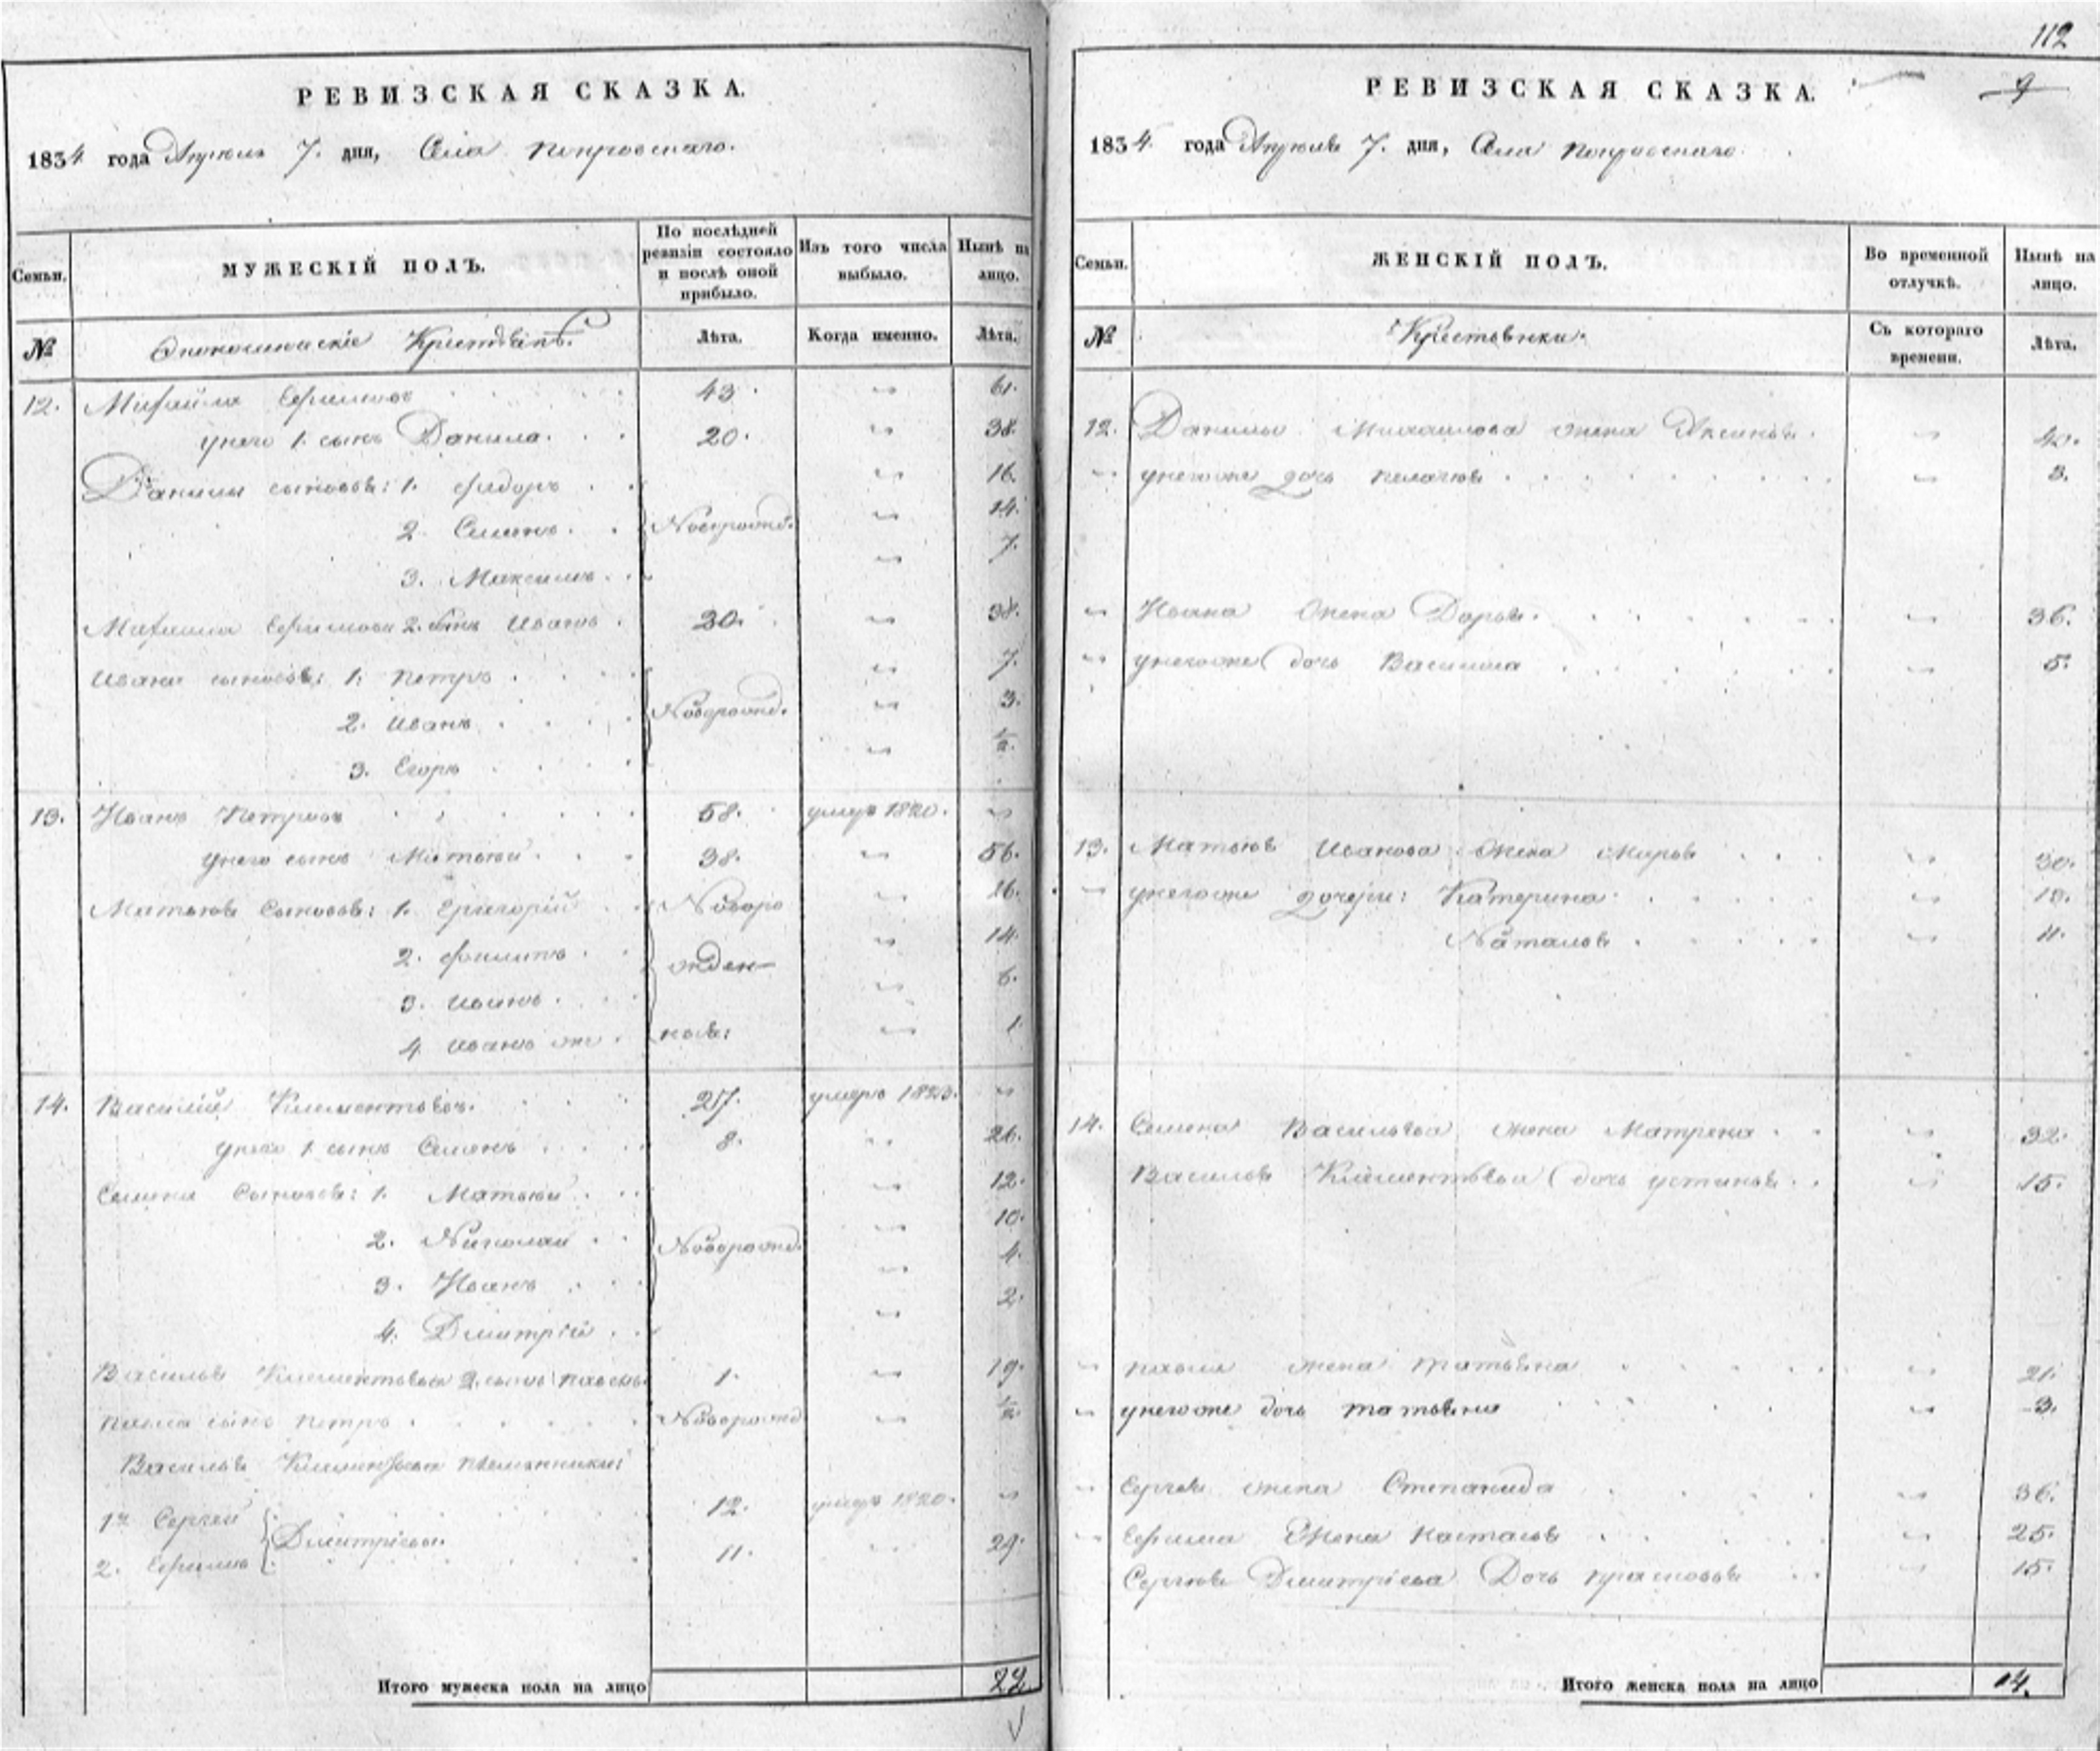 РЕВИЗСКАЯ СКАЗКА.
1834 года Апреля 7. дня, Села Покровскаго.
Семьи.
МУЖЕСКІЙ ПОЛЪ.
По послѣдней ревизіи состояло и послѣ оной прибыло.
Изъ того числа выбыло.
Нынѣ на лицо.
№
Крестьянъ.
Лѣта.
Когда именно.
Лѣта.
12. Михайла Ефимовъ 43. 61.
у него 1. сынъ Данила. 20. 38.
Данилы сыновья: 1. Федоръ 16.
2. Семенъ. Новорожд. 14.
3. Максимъ. 7.
Михайла Ефимова 2. сынъ Иванъ 20. 38.
Ивана сыновья: 1. Петръ 7.
2. Иванъ Новорожд. 3.
3. Егоръ 1/2.
13. Иванъ Петровъ 58. умеръ 1820.
у него сынъ Матвей 38. 56.
Матвея сыновья: 1. Григорій Новоро 26.
2. Филипъ жден 14.
3. Иванъ. 6.
4 Иванъ же ные: 1
14. Василій Климентьевъ. 27. умеръ 1823.
у него 1 сынъ Семенъ 8. 26.
Семена сыновья: 1. Матвей 12.
2. Николай Новорожд. 10.
3. Иванъ 4.
4. Дмитрій 2.
Василья Климентьева 2. сынъ Павелъ 1. 19.
Павла сынъ Петръ Новорожд 1/2.
Василья Климентьева племянники:
1й Сергей 12. умеръ 1820.
Дмитріевы.
2. Ефимъ 11. 29.
Итого мужеска пола на лицо 22
112
9
РЕВИЗСКАЯ СКАЗКА.
1834 года Апреля 7. дня, Села Покровскаго.
Семьи.
ЖЕНСКІЙ ПОЛЪ.
Во временной отлучкѣ.
Нынѣ на лицо.
№
Крестьянки.
Съ котораго времени.
Лѣта.
12. Данилы Михайлова жена Аксинья. 40.
у него же дочь Пелагея 3.
Ивана жена Дарья. 36.
у него же дочь Василиса 5.
13. Матвея Иванова жена Марья 30.
у него же дочери: Катерина 18.
Наталья 11.
14. Семена Васильева жена Матрена 32.
Василья Климентьева дочь Устинья 15.
Павла жена Татьяна 21.
у него же дочь Татьяна 3.
Сергея жена Степанида 36.
Ефима жена Настасья 25.
Сергея Дмитріева дочь Прасковья 15.
Итого женска пола на лицо 14.